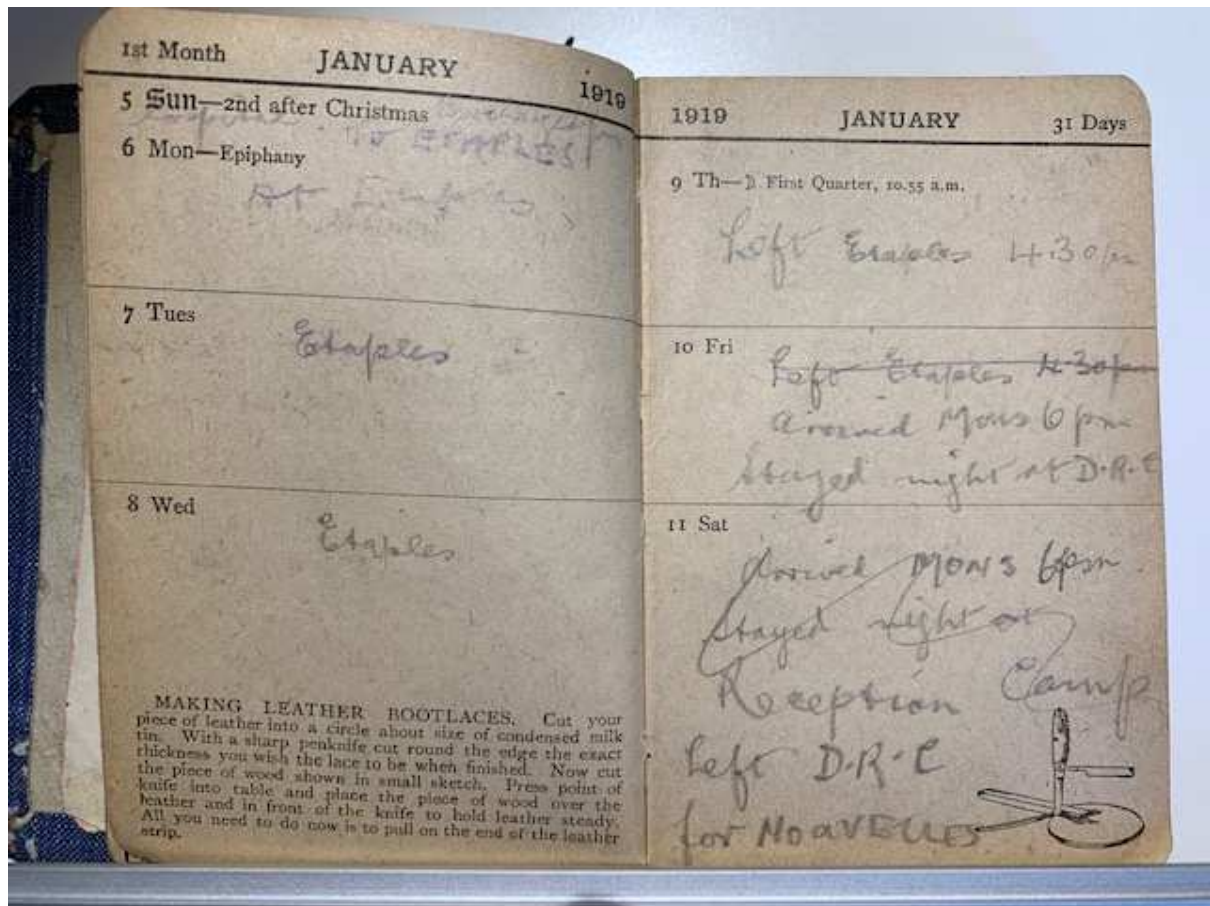 1st Month JANUARY 1919
5 Sun—2nd after Christmas
TO ETAPLES
6 Mon—Epiphany
At Etaples
7 Tues
Etaples
8 Wed
Etaples
MAKING LEATHER BOOTLACES. Cut your
piece of leather into a circle about size of condensed milk
tin. With a sharp penknife cut round the edge the exact
thickness you wish the lace to be when finished. Now cut
the piece of wood shown in small sketch. Press point of
knife into table and place the piece of wood over the
leather and in front of the knife to hold leather steady.
All you need to do now is to pull on the end of the leather
strip.
1919 JANUARY 31 Days
9 Th—☽ First Quarter, 10.55 a.m.
Left Etaples 4.30 pm
10 Fri
Left Etaples 4.30 pm
arrived Mons 6 pm
Stayed night at D.R.C
11 Sat
Arrived MONS 6pm.
Stayed night at
Reception Camp
Left D.R.C
for NOAVELLES